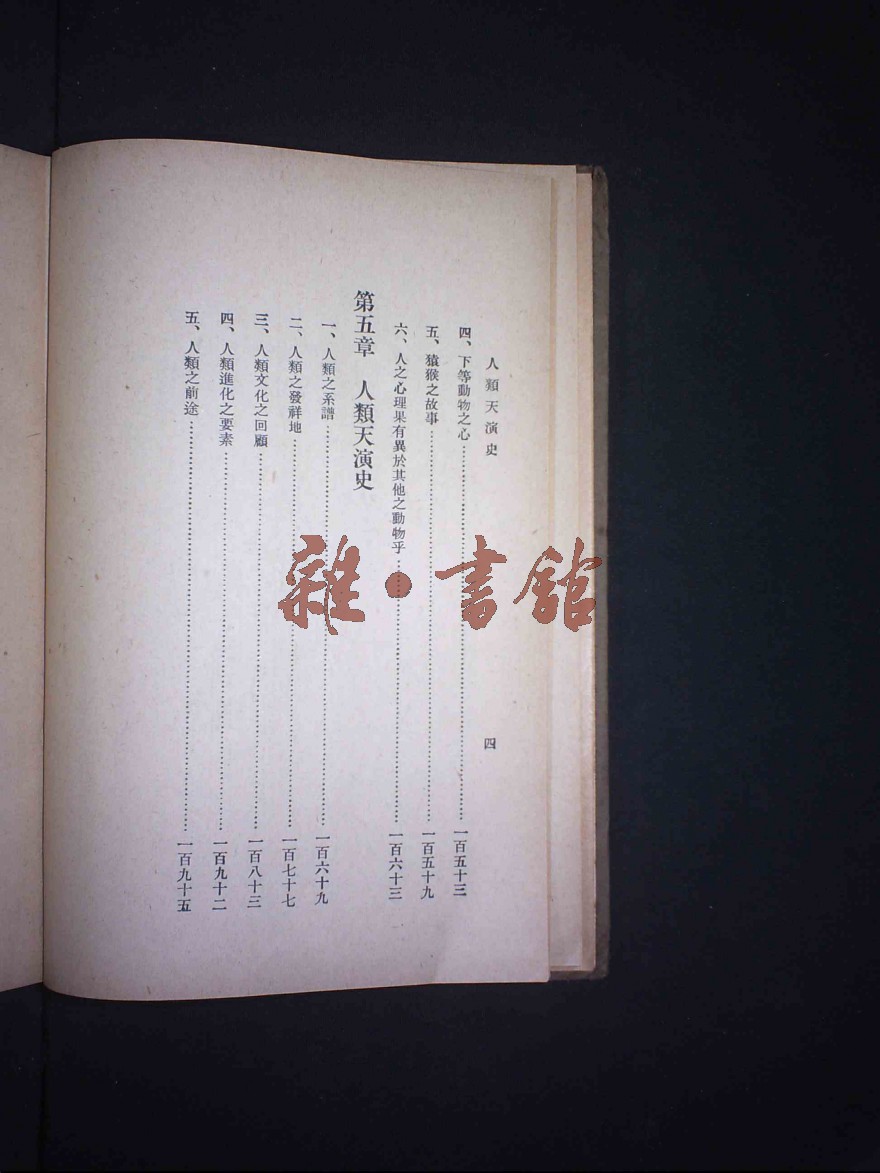 人類天演史
四
四、下等動物之心………一百五十三
五、猿猴之故事………一百五十九
六、人之心理果有異於其他之動物乎………一百六十三
第五章 人類天演史
一、人類之系譜………一百六十九
二、人類之發祥地………一百七十七
三、人類文化之回顧………一百八十三
四、人類進化之要素………一百九十二
五、人類之前途………一百九十五
雜·書館